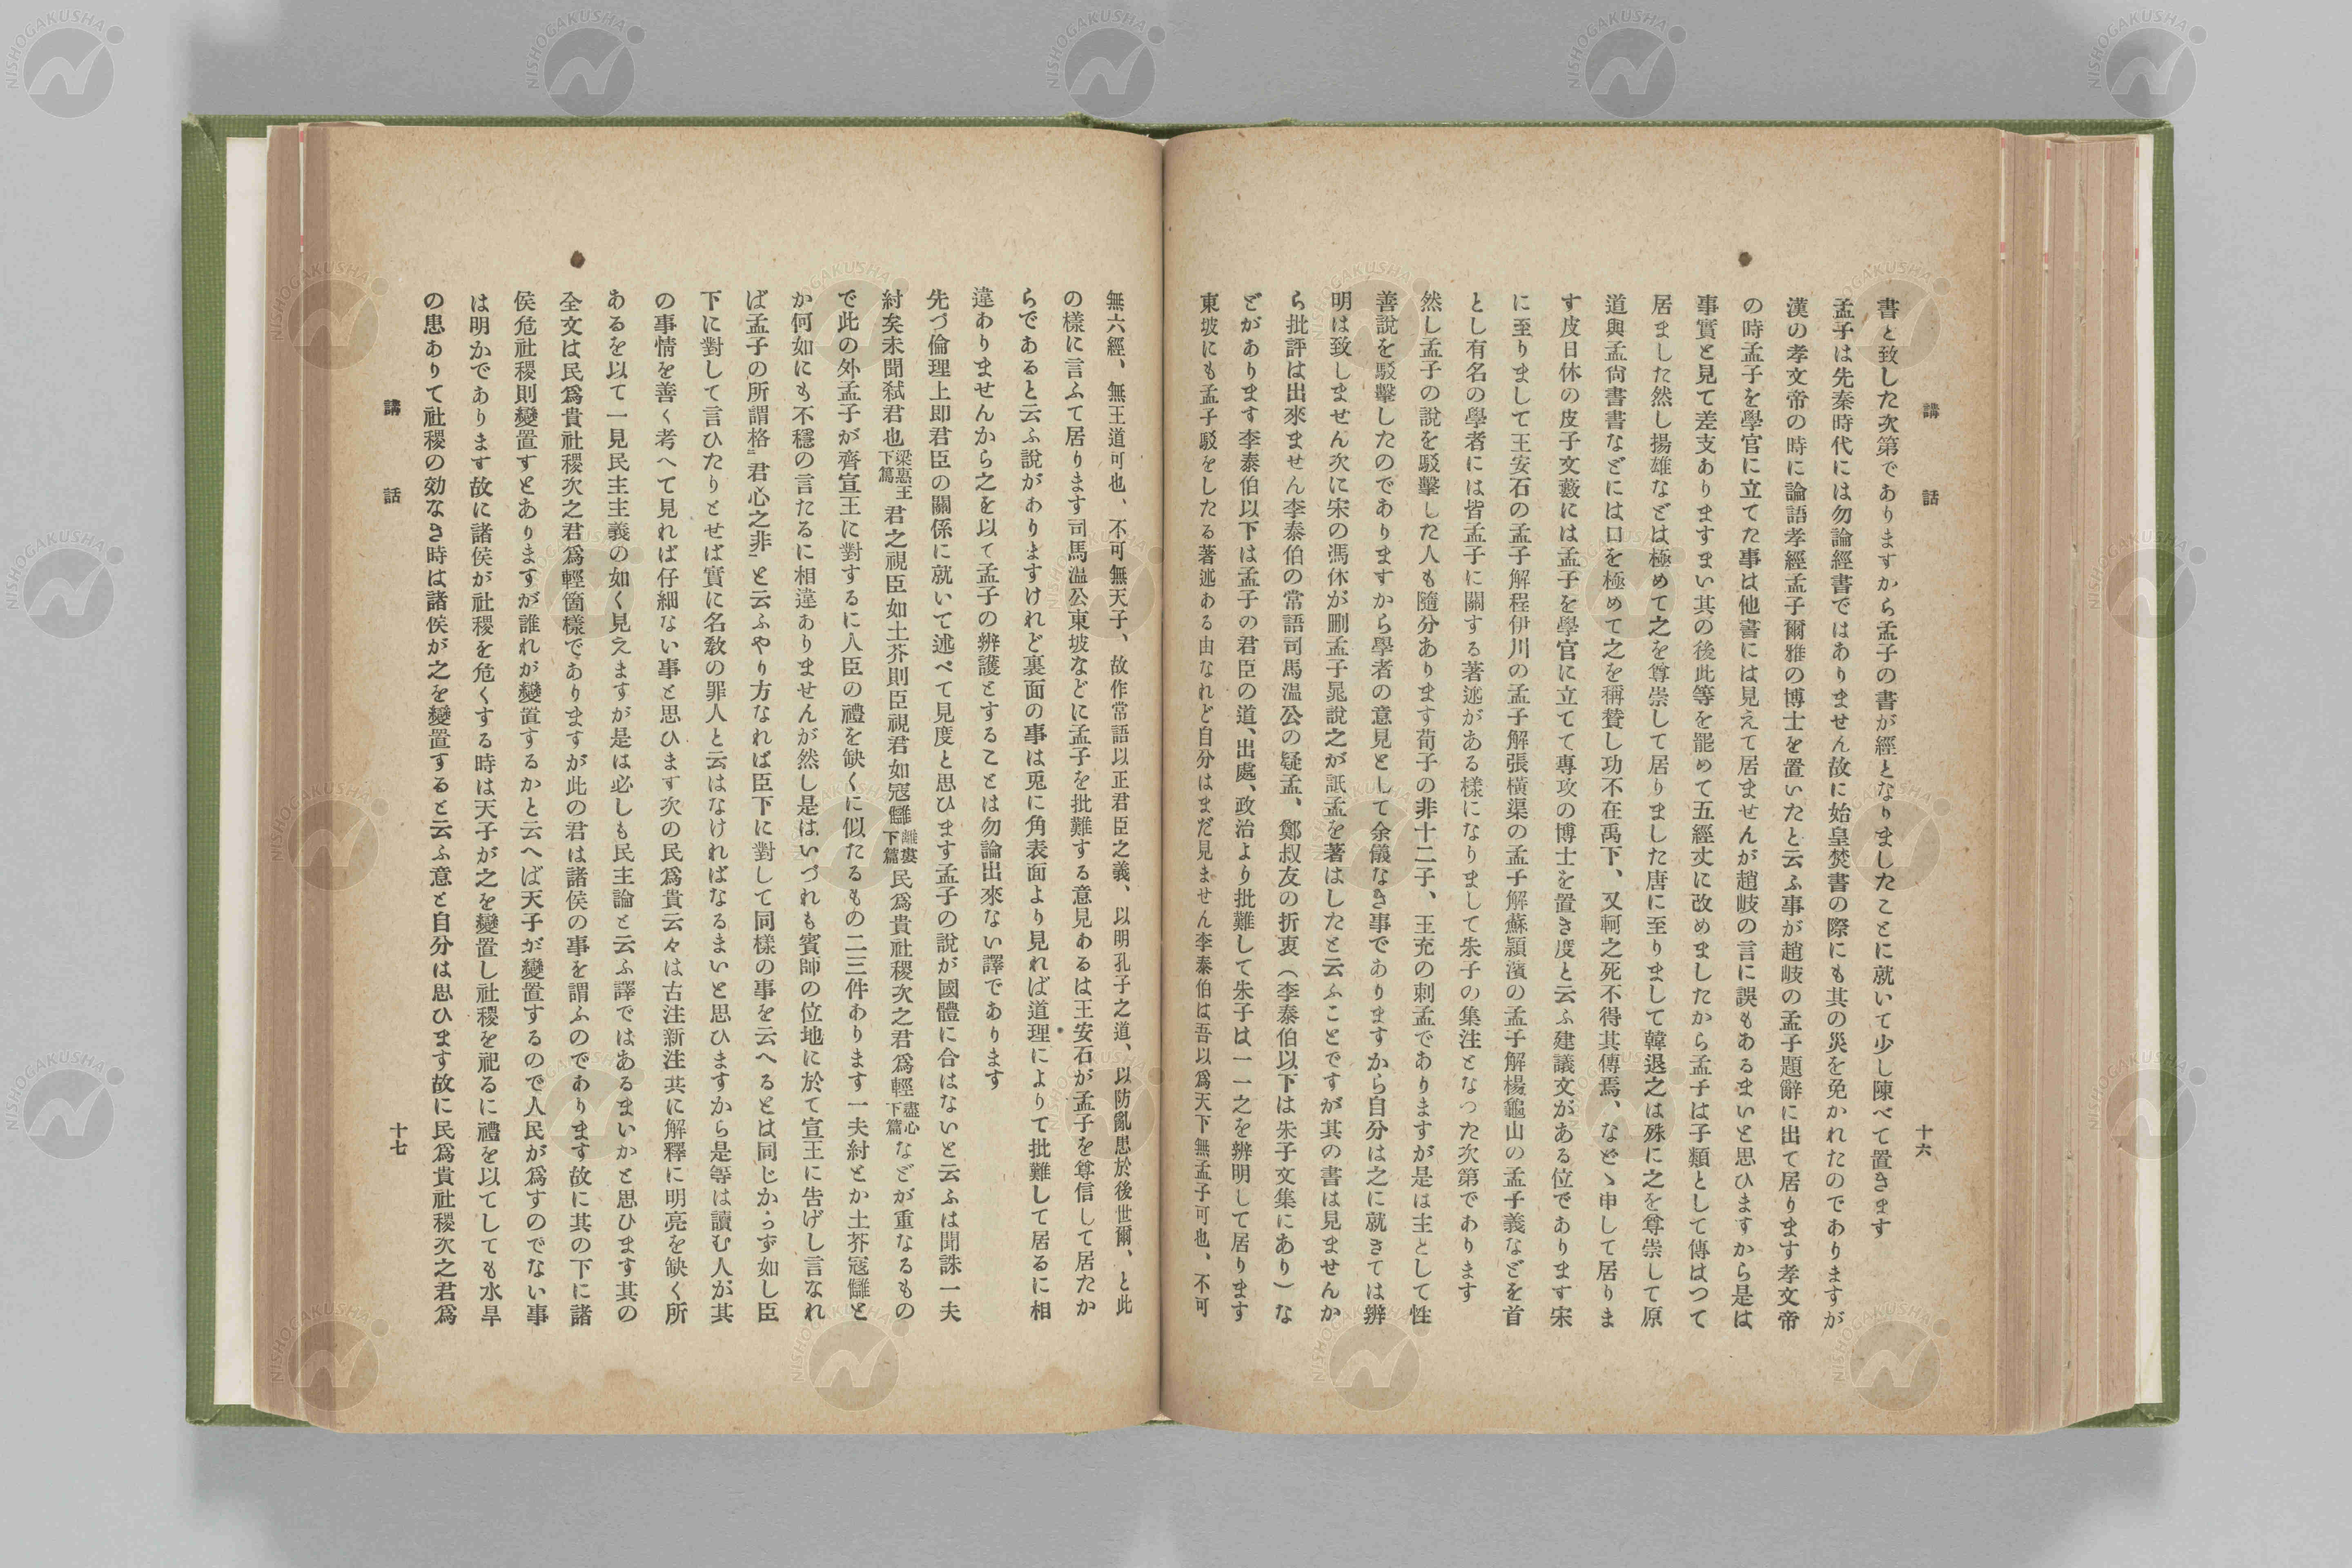 講話
十六
書と致した次第でありますから孟子の書が經となりましたことに就いて少し陳べて置きます
孟子は先秦時代には勿論經書ではありません故に始皇焚書の際にも其の災を免かれたのでありますが
漢の孝文帝の時に論語孝經孟子爾雅の博士を置いたと云ふ事が趙岐の孟子題辭に出て居ります孝文帝
の時孟子を學官に立てた事は他書には見えて居ませんが趙岐の言に誤もあるまいと思ひますから是は
事實と見て差支ありますまい其の後此等を罷めて五經丈に改めましたから孟子は子類として傳はつて
居ました然し揚雄などは極めて之を尊崇して居りました唐に至りまして韓退之は殊に之を尊崇して原
道與孟尙書書などには口を極めて之を稱贊し功不在禹下、又軻之死不得其傳焉、など丶申して居りま
す皮日休の皮子文藪には孟子を學官に立てて專攻の博士を置き度と云ふ建議文がある位であります宋
に至りまして王安石の孟子解程伊川の孟子解張橫渠の孟子解蘇潁濱の孟子解楊龜山の孟子義などを首
とし有名の學者には皆孟子に關する著述がある樣になりまして朱子の集注となつた次第であります
然し孟子の說を駁擊した人も隨分あります荀子の非十二子、王充の刺孟でありますが是は主として性
善說を駁擊したのでありますから學者の意見として余儀なき事でありますから自分は之に就きては辨
明は致しません次に宋の馮休が刪孟子晁說之が詆孟を著はしたと云ふことですが其の書は見ませんか
ら批評は出來ません李泰伯の常語司馬温公の疑孟、鄭叔友の折衷（李泰伯以下は朱子文集にあり）な
どがあります李泰伯以下は孟子の君臣の道、出處、政治より批難して朱子は一一之を辨明して居ります
東坡にも孟子駁をしたる著述ある由なれど自分はまだ見ません李泰伯は吾以爲天下無孟子可也、不可
無六經、無王道可也、不可無天子、故作常語以正君臣之義、以明孔子之道、以防亂患於後世爾、と此
の樣に言ふて居ります司馬温公東坡などに孟子を批難する意見あるは王安石が孟子を尊信して居たか
らであると云ふ說がありますけれど裏面の事は兎に角表面より見れば道理によりて批難して居るに相
違ありませんから之を以て孟子の辨護とすることは勿論出來ない譯であります
先づ倫理上即君臣の關係に就いて述べて見度と思ひます孟子の說が國體に合はないと云ふは聞誅一夫
紂矣未聞弑君也梁惠王下篇君之視臣如土芥則臣視君如寇讎離婁下篇民爲貴社稷次之君爲輕盡心下篇などが重なるもの
で此の外孟子が齊宣王に對するに人臣の禮を缺くに似たるもの二三件あります一夫紂とか土芥寇讎と
か何如にも不穩の言たるに相違ありませんが然し是はいづれも賓師の位地に於て宣王に告げし言なれ
ば孟子の所謂格『君心之非』と云ふやり方なれば臣下に對して同樣の事を云へるとは同じからず如し臣
下に對して言ひたりとせば實に名敎の罪人と云はなければなるまいと思ひますから是等は讀む人が其
の事情を善く考へて見れば仔細ない事と思ひます次の民爲貴云々は古注新注共に解釋に明亮を缺く所
あるを以て一見民主主義の如く見えますが是は必しも民主論と云ふ譯ではあるまいかと思ひます其の
全文は民爲貴社稷次之君爲輕箇樣でありますが此の君は諸侯の事を謂ふのであります故に其の下に諸
侯危社稷則變置すとありますが誰れが變置するかと云へば天子が變置するので人民が爲すのでない事
は明かであります故に諸侯が社稷を危くする時は天子が之を變置し社稷を祀るに禮を以てしても水旱
の患ありて社稷の効なき時は諸侯が之を變置すると云ふ意と自分は思ひます故に民爲貴社稷次之君爲
講話
十七
NISHOGAKUSHA